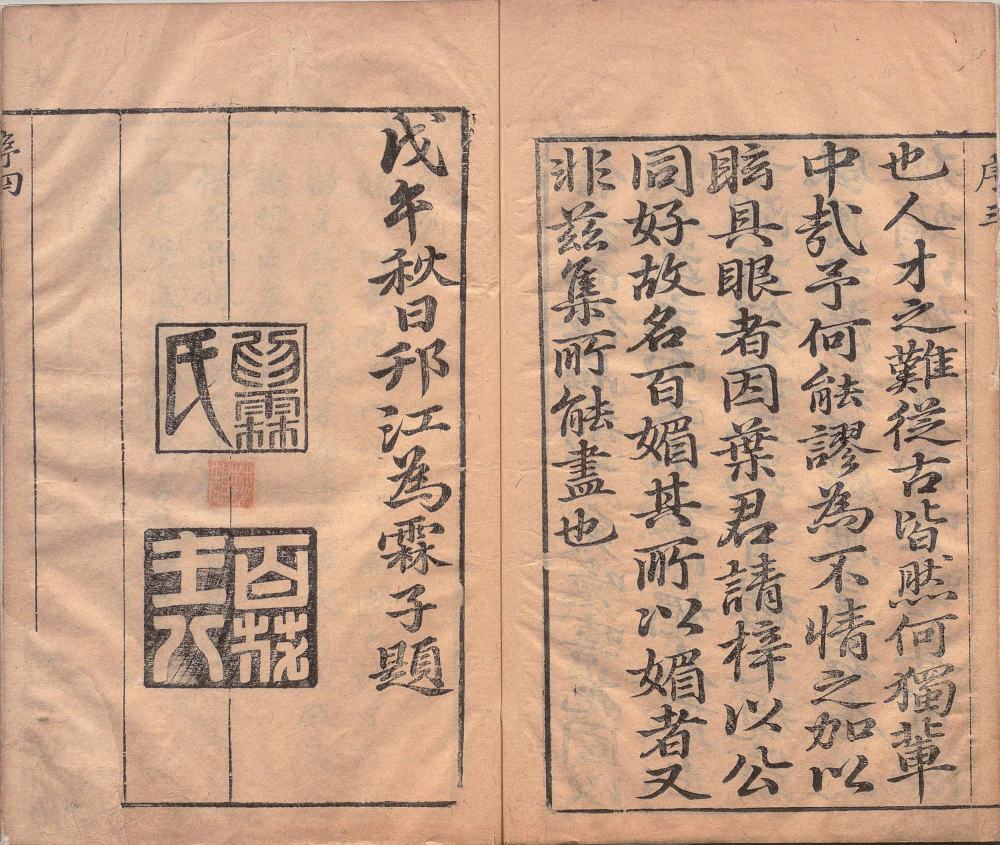 序三
也人才之難從古皆然何獨輩
中哉予何能謬為不情之加以
眩具眼者因葉君請梓以公
同好故名百媚其所以媚者又
非茲集所能盡也
戊午秋日邗江為霖子題
為霖氏
主人
序四